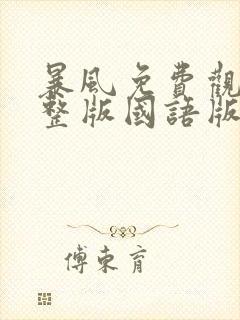 暴風免費觀
整版國語版
傅東育